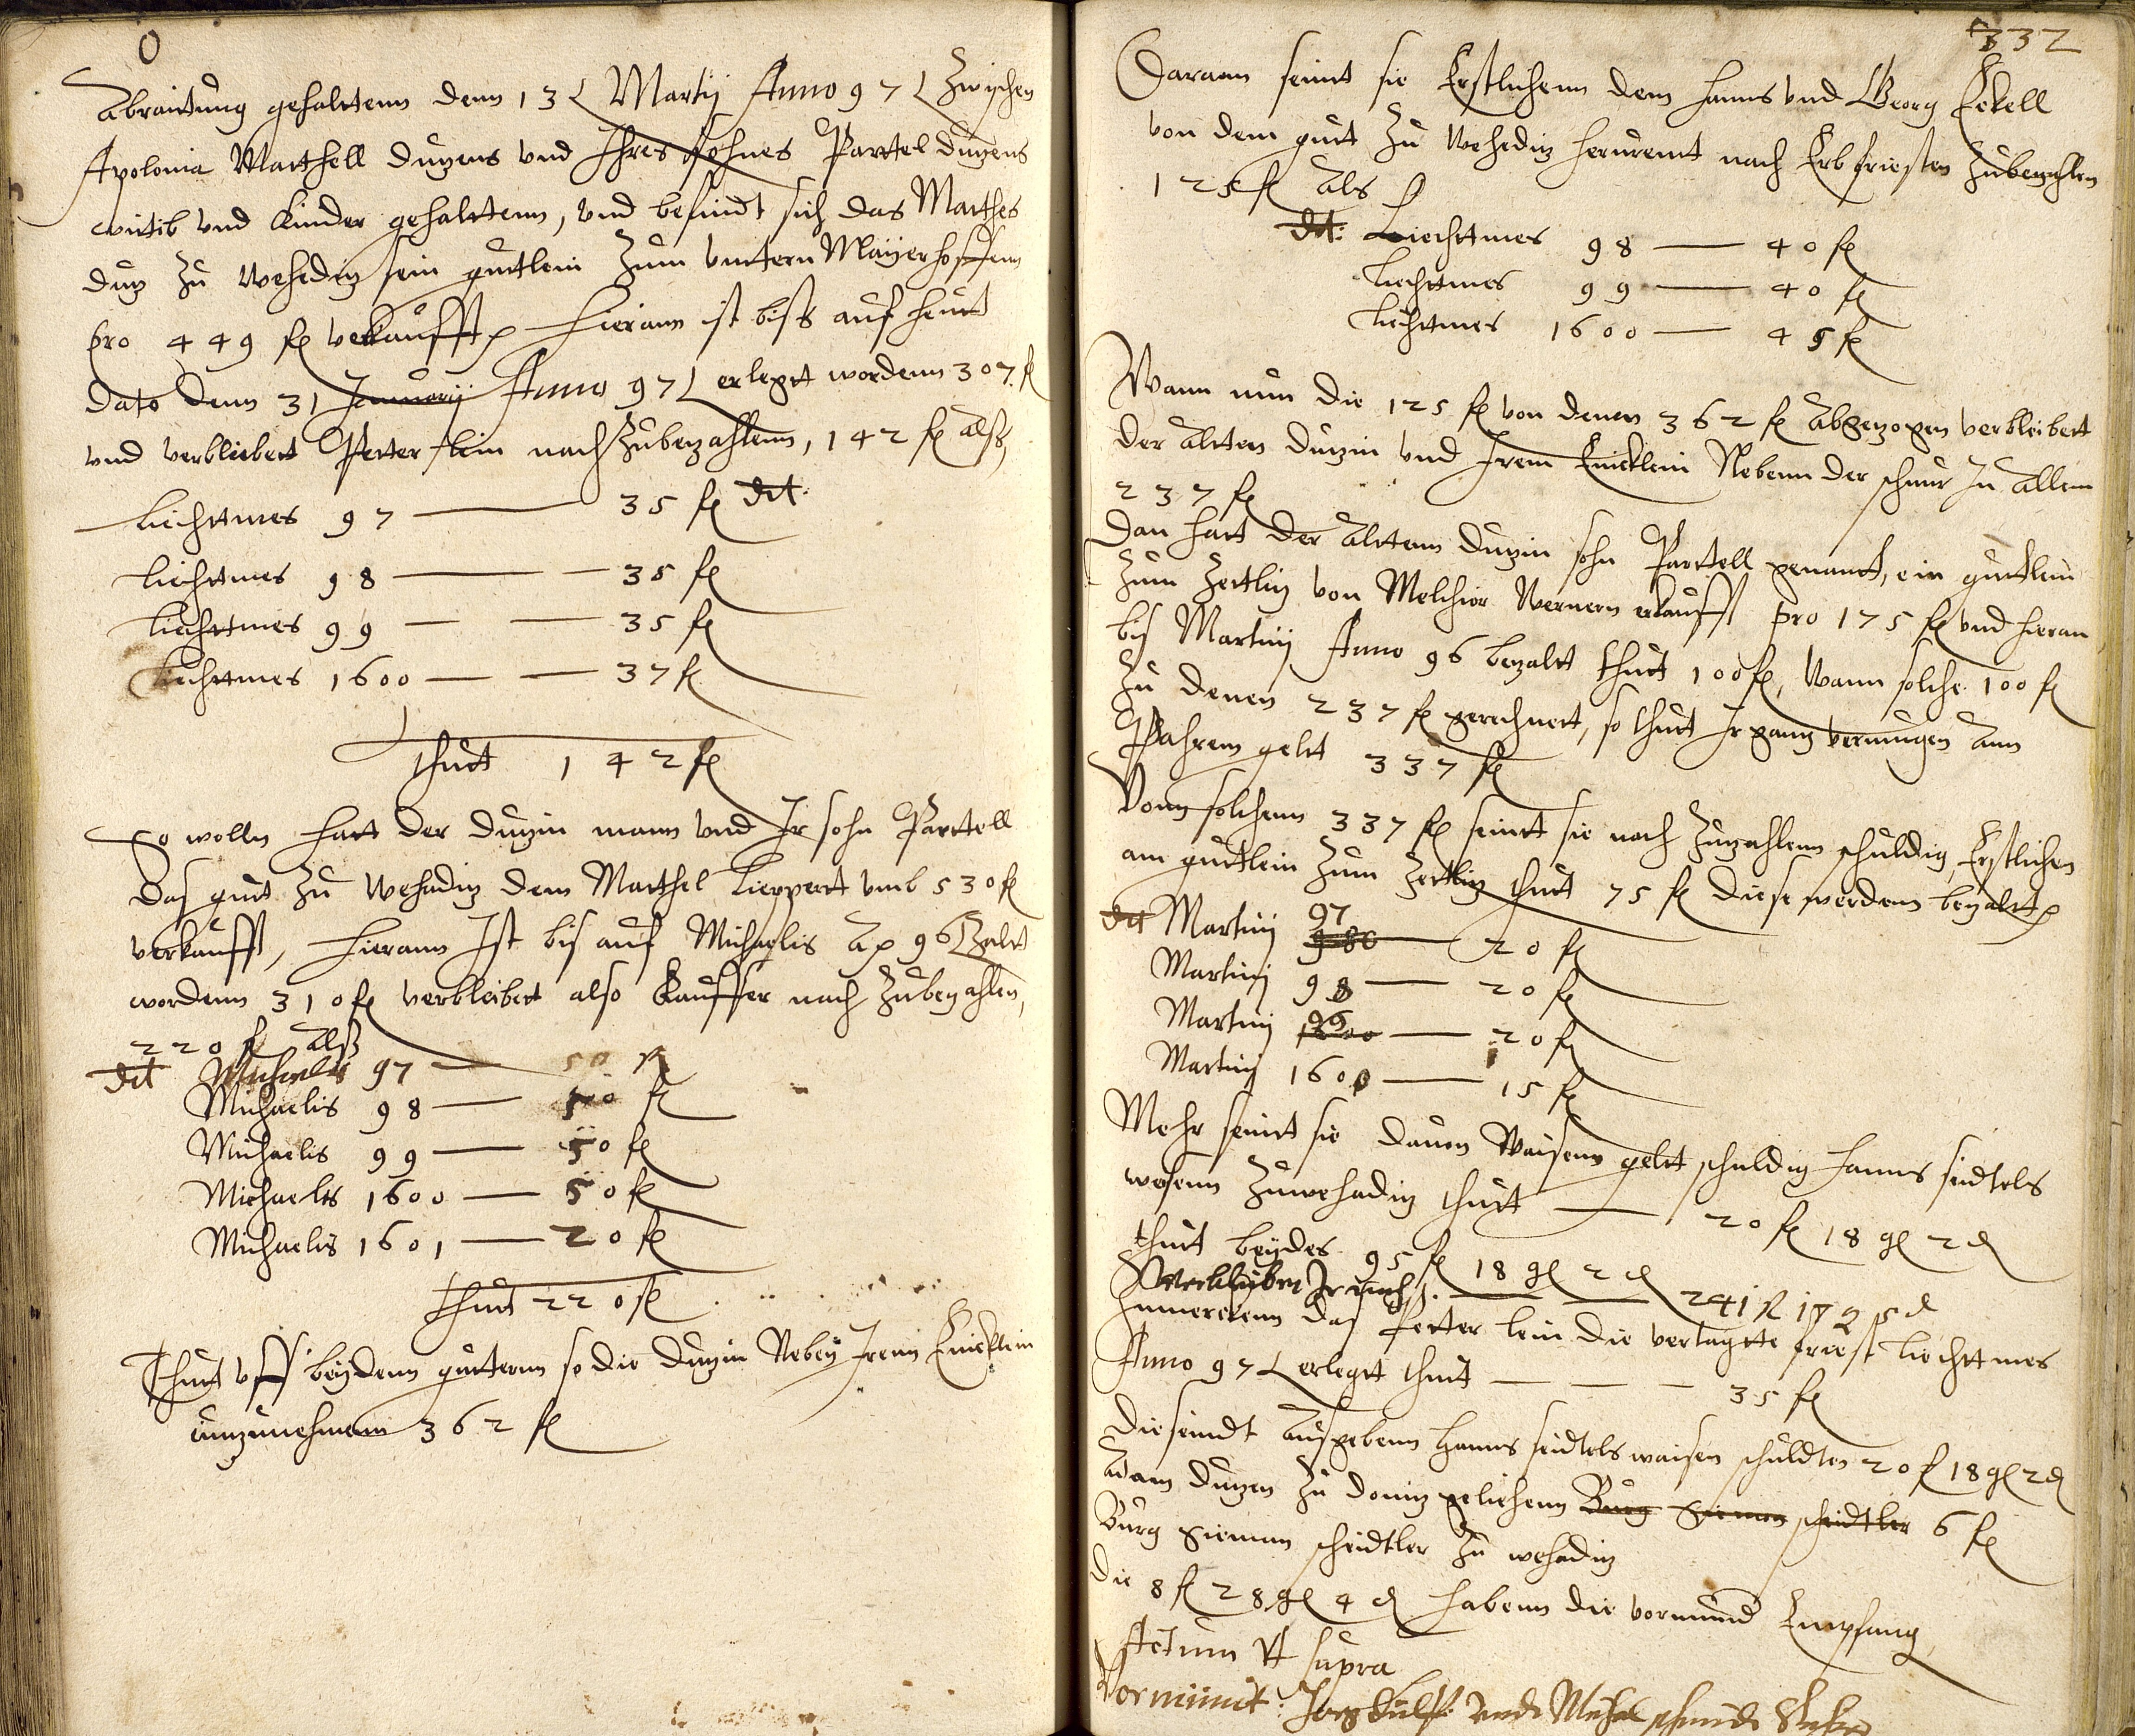 0
Abraittung gehalttenn denn 13 Martij Anno 97 Zwischen
Apolonia Matthell Duzens und Ihres Sohnes Parttel Duzens
wittib und Kinder gehalttenn, und befindt sich das Matthes
Duz zu Wehediz sein guttlein zum unttern Mayerhoffenn
pro 449 fl verkaufft Hierann ist biss auf heutt
dato denn 31 Januarij Anno 97 erlegt wordenn 307 fl
und verbleibert Petter lein nach zubezahlenn, 142 fl alss,
Liechttmes 97 — 35 fl dt
Liechttmes 98 — 35 fl
Liechttmes 99 — 35 fl
Liechttmes 1600 — 37 fl
thutt 142 fl
So wolln hatt der Duzin mann und Ir sohn Parttell
das gutt zu Wehediz dem Matthel Lieppert umb 530 fl
verkaufft, Hierann Ist bis auf Michaelis Ao 96 bezalt
wordenn 310 fl verbleibert also Kauffer nach zubezahlen,
220 fl alss
dt Michaelis 97 — 50 fl
Michaelis 98 — 50 fl
Michaelis 99 — 50 fl
Michaelis 1600 — 50 fl
Michaelis 1601 — 20 fl
thutt 220 fl
Thutt uff beydenn guttern so die Duzin Neben Irenn Enicklein
einzunehmenn 362 fl
332
Darann seint sie Erstlichenn dem Hanns und Georg Eckell
von dem gutt zu Wehediz herurent nach Erbfristen zubezahlen
125 fl als
dt: Liechttmes 98 — 40 fl
Liechttmes 99 — 40 fl
Liechttmes 1600 — 45 fl
Wann nun die 125 fl von denen 362 fl abgezogen verbleibert
der altten Duzin und Irem Enicklein Nebenn der schnur In allem
237 fl
Dan hatt der alttenn Duzin sohn Parttell genantt, ein guttlein
zum Zettliz von Melchior Wernern erkaufft pro 175 fl und hieran
bis Martinj Anno 96 bezalt thutt 100 fl, Wann solche 100 fl
zu denen 237 fl gerechnett, so thutt Ir ganz vermugen ann
Pahrem gelt 337 fl
Vonn solchenn 337 fl seintt sie noch zuzahlenn schuldig, Erstlichen
am guttlein zum Zettliz thutt 75 fl diese werdenn bezaltt
dt Martinj 97 — 20 fl
Martinj 98 — 20 fl
Martinj 99 — 20 fl
Martinj 1600 — 15 fl
Mehr seintt sie dauon Waisenn gelt schuldig Hanns seidtels
wesenn zuwehediz thutt — 20 fl 18 gl 2 d
thutt beydes 95 fl 18 gl 2 d
verbleibet Ir nach — 241 fl 17 g 5 d
das Petter lein die vertagtte frist Liechttmes
Anno 97 erlegtt thutt — 35 fl
Dieseindt Ausgebenn Hanns seidtels waisen schuldten 20 fl 18 gl 2 d
Adam Duzen zu Doniz geliehenn Burg Simon scheidtler 6 fl
Burg Simon scheidtler zu wehediz
die 8 fl 28 gl 4 d habenn die vormund Empfang
Actum Ut supra
Vormundt: Jorg